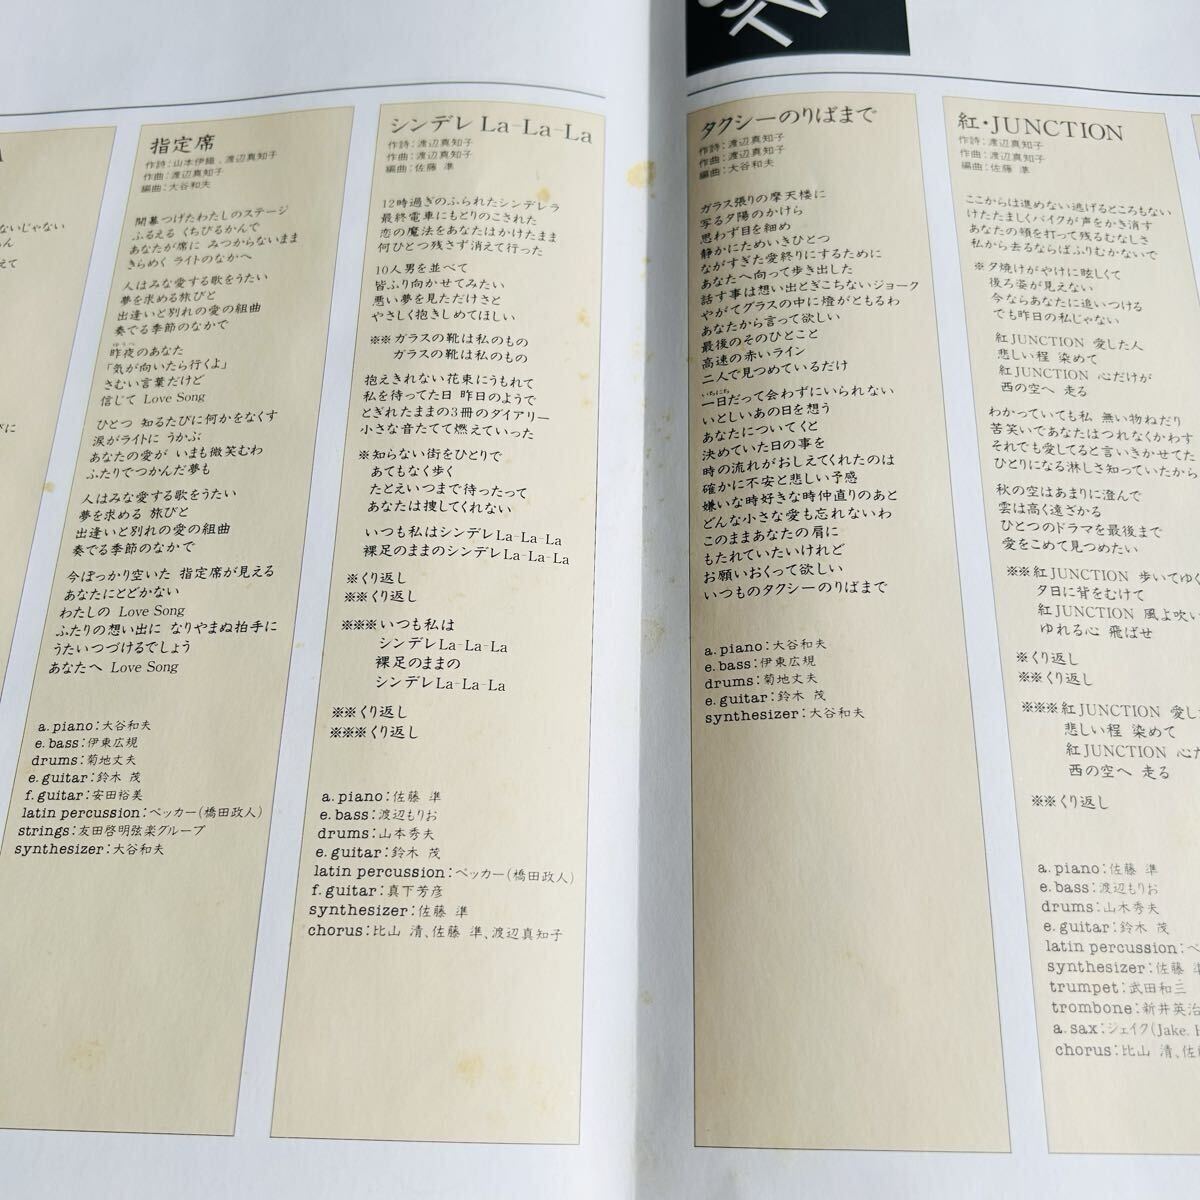 指定席
作詩:山本伊織、渡辺真知子
作曲:渡辺真知子
編曲:大谷和夫
開幕つげたわたしのステージ
ふるえる くちびるかんで
あなたが席に みつからないまま
きらめく ライトのなかへ
人はみな愛する歌をうたい
夢を求める旅びと
出逢いと別れの愛の組曲
奏でる季節のなかで
昨夜のあなた
「気が向いたら行くよ」
さむい言葉だけど
信じて Love Song
ひとつ 知るたびに何かをなくす
涙がライトに うかぶ
あなたの愛が いまも微笑むわ
ふたりでつかんだ夢も
人はみな愛する歌をうたい
夢を求める 旅びと
出逢いと別れの愛の組曲
奏でる季節のなかで
今ぽっかり空いた 指定席が見える
あなたにとどかない
わたしの Love Song
ふたりの想い出に なりやまぬ拍手に
うたいつづけるでしょう
あなたへ Love Song
a. piano:大谷和夫
e. bass:伊東広規
drums:菊地丈夫
e. guitar:鈴木 茂
f. guitar:安田裕美
latin percussion:ペッカー(橋田政人)
strings:友田啓明弦楽グループ
synthesizer:大谷和夫
シンデレ La-La-La
作詩:渡辺真知子
作曲:渡辺真知子
編曲:佐藤 準
12時過ぎのふられたシンデレラ
最終電車にもとりのこされた
恋の魔法をあなたはかけたまま
何ひとつ残さず消えて行った
10人男を並べて
皆ふり向かせてみたい
悪い夢を見ただけさと
やさしく抱きしめてほしい
※※ガラスの靴は私のもの
ガラスの靴は私のもの
抱えきれない花束にうもれて
私を待ってた日 昨日のようで
とぎれたままの3冊のダイアリー
小さな音たてて燃えていった
※知らない街をひとりで
あてもなく歩く
たとえいつまで待ったって
あなたは捜してくれない
いつも私はシンデレLa-La-La
裸足のままのシンデレLa-La-La
※くり返し
※※くり返し
※※※いつも私は
シンデレLa-La-La
裸足のままの
シンデレLa-La-La
※※くり返し
※※※くり返し
a. piano:佐藤 準
e. bass:渡辺もりお
drums:山本秀夫
e. guitar:鈴木 茂
latin percussion:ペッカー(橋田政人)
f. guitar:真下芳彦
synthesizer:佐藤 準
chorus:比山 清、佐藤 準、渡辺真知子
タクシーのりばまで
作詩:渡辺真知子
作曲:渡辺真知子
編曲:大谷和夫
ガラス張りの摩天楼に
写る夕陽のかけら
思わず目を細め
静かにためいきひとつ
ながすぎた愛終りにするために
あなたへ向って歩き出した
話す事は想い出とぎこちないジョーク
やがてグラスの中に燈がともるわ
あなたから言って欲しい
最後のそのひとこと
高速の赤いライン
二人で見つめているだけ
一日だって会わずにいられない
いとしいあの日を想う
あなたについてくと
決めていた日の事を
時の流れがおしえてくれたのは
確かに不安と悲しい予感
嫌いな時好きな時仲直りのあと
どんな小さな愛も忘れないわ
このままあなたの肩に
もたれていたいけれど
お願いおくって欲しい
いつものタクシーのりばまで
a. piano:大谷和夫
e. bass:伊東広規
drums:菊地丈夫
e. guitar:鈴木 茂
synthesizer:大谷和夫
紅・JUNCTION
作詩:渡辺真知子
作曲:渡辺真知子
編曲:佐藤 準
ここからは進めない逃げるところもない
けたたましくバイクが声をかき消す
あなたの頬を打って残るむなしさ
私から去るならばふりむかないで
※夕焼けがやけに眩しくて
後ろ姿が見えない
今ならあなたに追いつける
でも昨日の私じゃない
紅JUNCTION 愛した人
悲しい程 染めて
紅JUNCTION 心だけが
西の空へ 走る
わかっていても私 無い物ねだり
苦笑いであなたはつれなくかわす
それでも愛してると言いきかせてた
ひとりになる淋しさ知っていたから
秋の空はあまりに澄んで
雲は高く遠ざかる
ひとつのドラマを最後まで
愛をこめて見つめたい
※※紅JUNCTION 歩いてゆく
夕日に背をむけて
紅JUNCTION 風よ吹い
ゆれる心 飛ばせ
※くり返し
※※くり返し
※※※紅JUNCTION 愛し
悲しい程 染めて
紅JUNCTION 心だ
西の空へ 走る
※※くり返し
a. piano:佐藤 準
e. bass:渡辺もりお
drums:山本秀夫
e. guitar:鈴木 茂
latin percussion:ペ
synthesizer:佐藤 準
trumpet:武田和三
trombone:新井英治
a. sax:ジェイク(Jake.
chorus:比山 清、佐